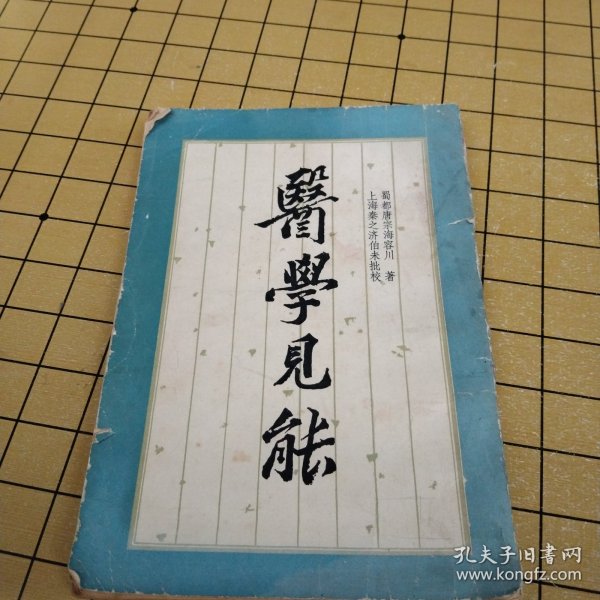 蜀都唐宗海容川 著
上海秦之济伯未批校
醫學見能
孔夫子旧书网
www.kongfz.com